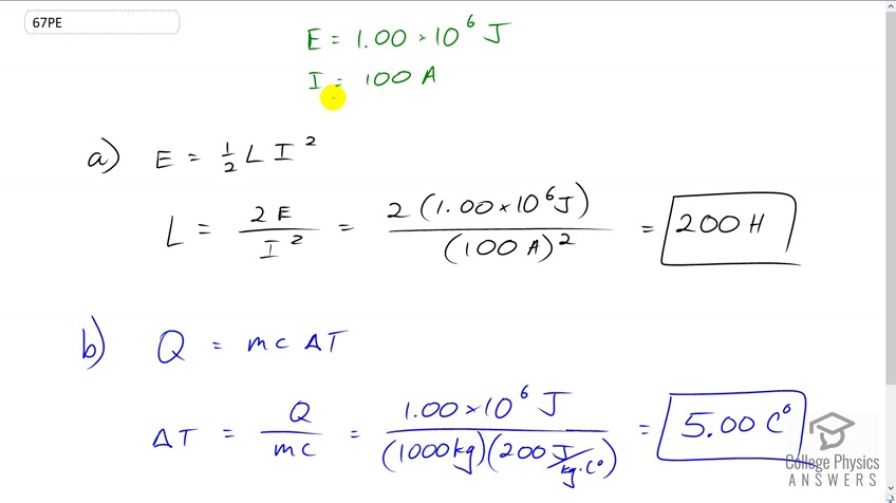 67PE
E = 1.00 × 10⁶ J
I = 100 A
a) E = ½ L I²
L = 2E / I² = 2 (1.00 × 10⁶ J) / (100 A)² = 200 H
b) Q = mc ΔT
ΔT = Q / mc = 1.00 × 10⁶ J / (1000 kg)(200 J/kg·C°) = 5.00 C°
College Physics
ANSWERS